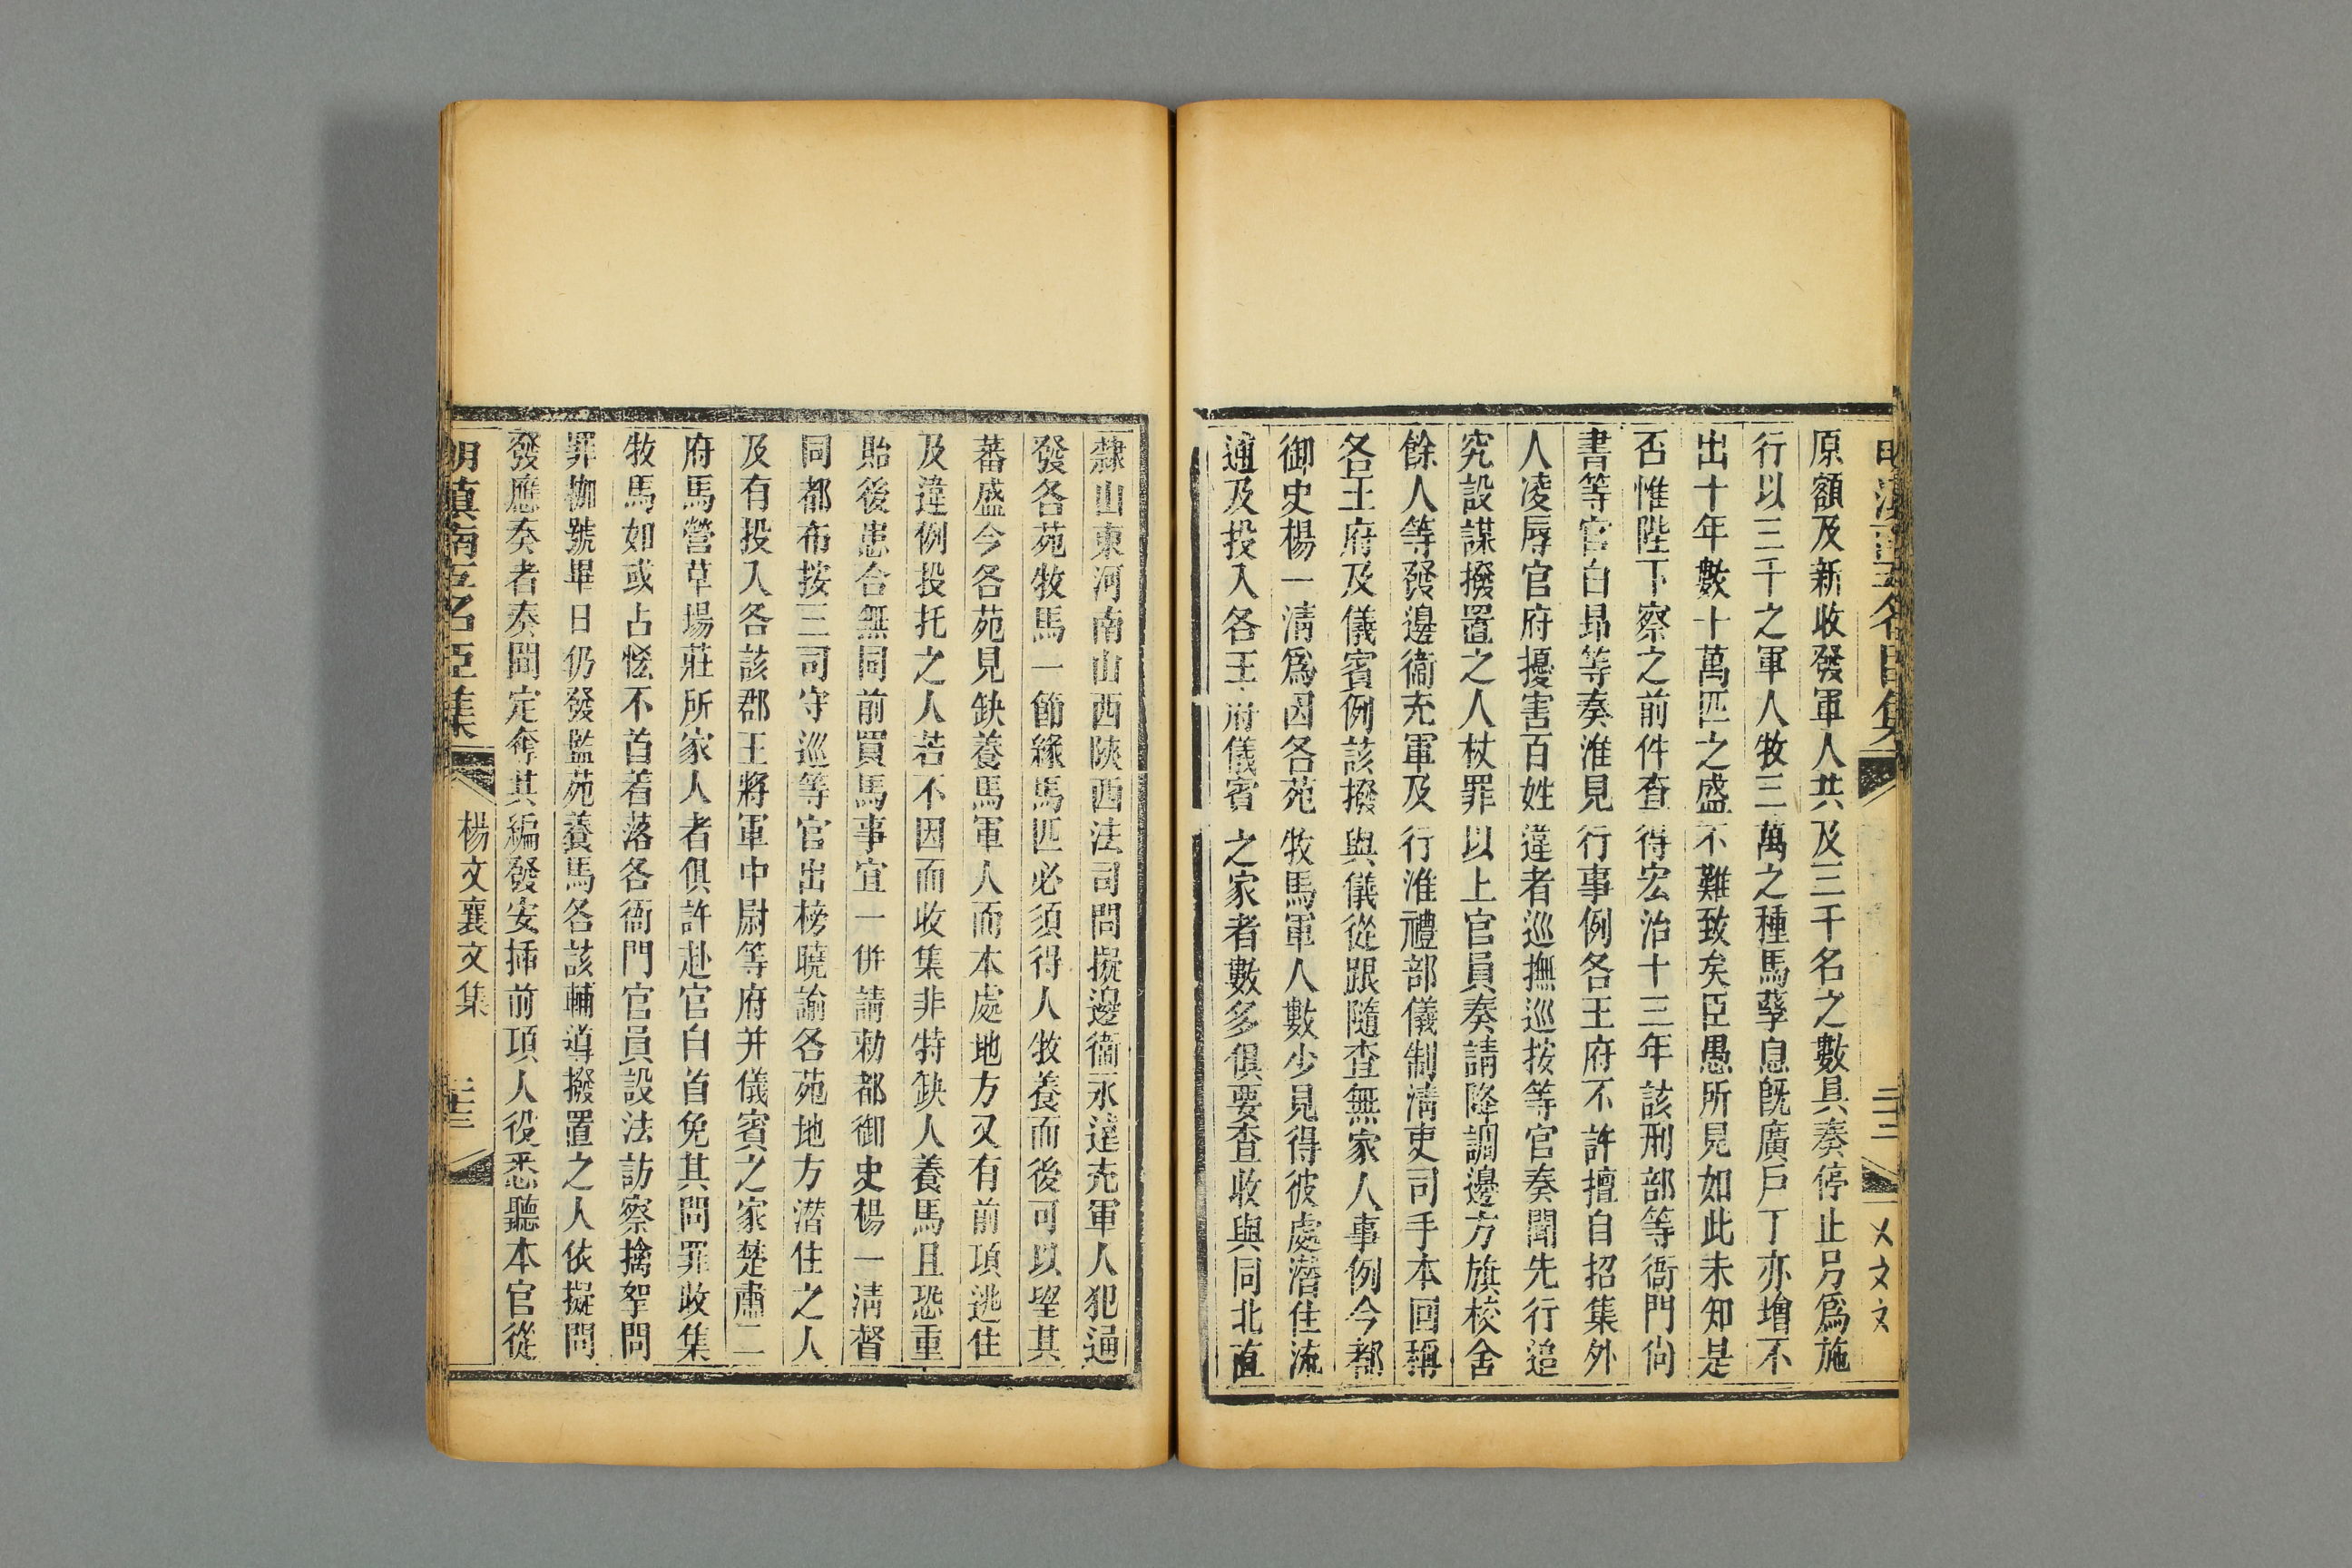 原額及新收發軍人共及三千名之數具奏停止另爲施
行以三千之軍人牧三萬之種馬孳息既廣戶丁亦增不
出十年數十萬匹之盛不難致矣臣愚所見如此未知是
否惟陛下察之前件查得宏治十三年該刑部等衙門尙
書等官白昻等奏准見行事例各王府不許擅自招集外
人凌辱官府擾害百姓違者巡撫巡按等官奏聞先行追
究設謀撥置之人杖罪以上官員奏請降調邊方旗校舍
餘人等發邊衞充軍及行准禮部儀制淸吏司手本回稱
各王府及儀賓例該撥與儀從跟隨查無家人事例今都
御史楊一淸爲因各苑牧馬軍人數少見得彼處潛住流
逋及投入各王府儀賓之家者數多俱要查收與同北直
隸山東河南山西陝西法司問擬邊衞永遠充軍人犯通
發各苑牧馬一節緣馬匹必須得人牧養而後可以望其
蕃盛今各苑見缺養馬軍人而本處地方又有前項逃住
及違例投托之人若不因而收集非特缺人養馬且恐重
貽後患合無同前買馬事宜一併請勅都御史楊一淸督
同都布按三司守巡等官出榜曉諭各苑地方潛住之人
及有投入各該郡王將軍中尉等府并儀賓之家楚肅二
府馬營草場莊所家人者俱許赴官自首免其問罪收集
牧馬如或占恡不首着落各衙門官員設法訪察擒拏問
罪枷號畢日仍發監苑養馬各該輔導撥置之人依擬問
發應奏者奏聞定奪其編發安插前項人役悉聽本官從
明滇南五名臣集 楊文襄文集